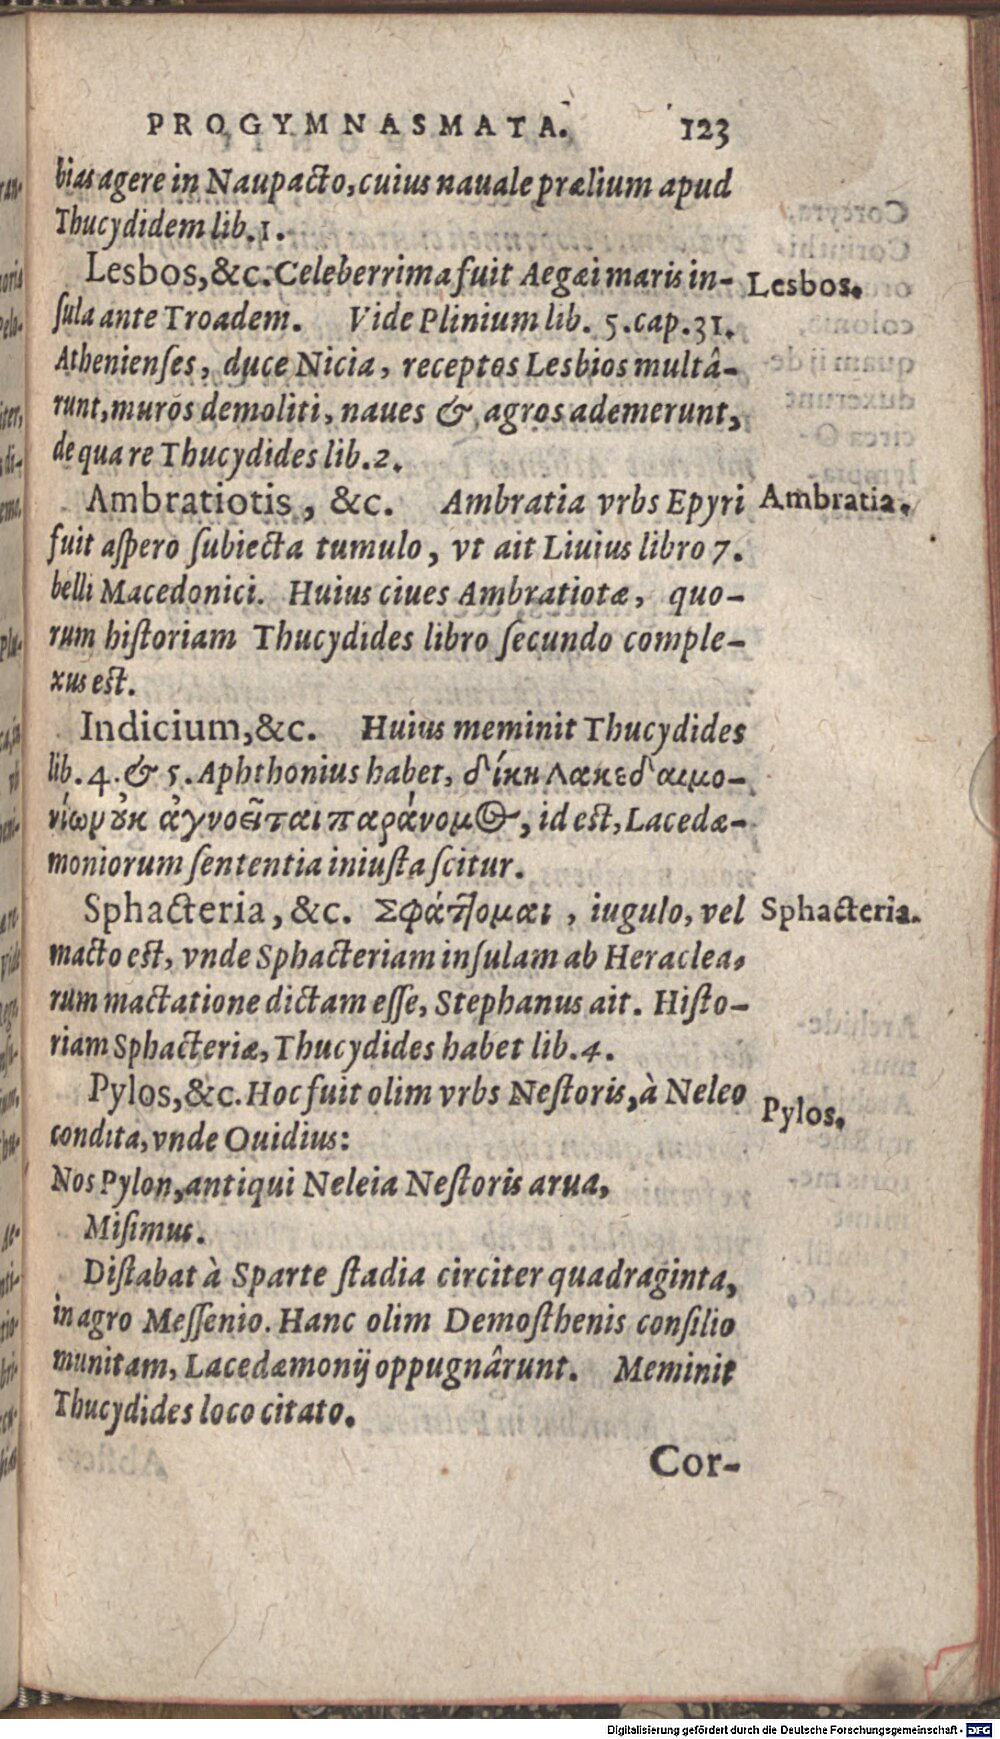 PROGYMNASMATA. 123
bias agere in Naupacto, cuius nauale prælium apud
Thucydidem lib. 1.
Lesbos, &c. Celeberrima fuit Aegæi maris in-
Lesbos.
sula ante Troadem. Vide Plinium lib. 5. cap. 31.
Athenienses, duce Nicia, receptos Lesbios multâ-
runt, muros demoliti, naues & agros ademerunt,
de qua re Thucydides lib. 2.
Ambratiotis, &c. Ambratia vrbs Epyri
Ambratia.
fuit aspero subiecta tumulo, vt ait Liuius libro 7.
belli Macedonici. Huius ciues Ambratiotæ, quo-
rum historiam Thucydides libro secundo comple-
xus est.
Indicium, &c. Huius meminit Thucydides
lib. 4. & 5. Aphthonius habet, δίκη Λακεδαιμο-
νίων ȣκ ἀγνοεῖται παράνομος, id est, Lacedæ-
moniorum sententia iniusta scitur.
Sphacteria, &c. Σφάτομαι, iugulo, vel
Sphacteria.
macto est, vnde Sphacteriam insulam ab Heraclea,
rum mactatione dictam esse, Stephanus ait. Histo-
riam Sphacteriæ, Thucydides habet lib. 4.
Pylos, &c. Hoc fuit olim vrbs Nestoris, à Neleo
Pylos.
condita, vnde Ouidius:
Nos Pylon, antiqui Neleia Nestoris arua,
Misimus.
Distabat à Sparte stadia circiter quadraginta,
in agro Messenio. Hanc olim Demosthenis consilio
munitam, Lacedæmonij oppugnârunt. Meminit
Thucydides loco citato.
Cor-
Digitalisierung gefördert durch die Deutsche Forschungsgemeinschaft - DFG